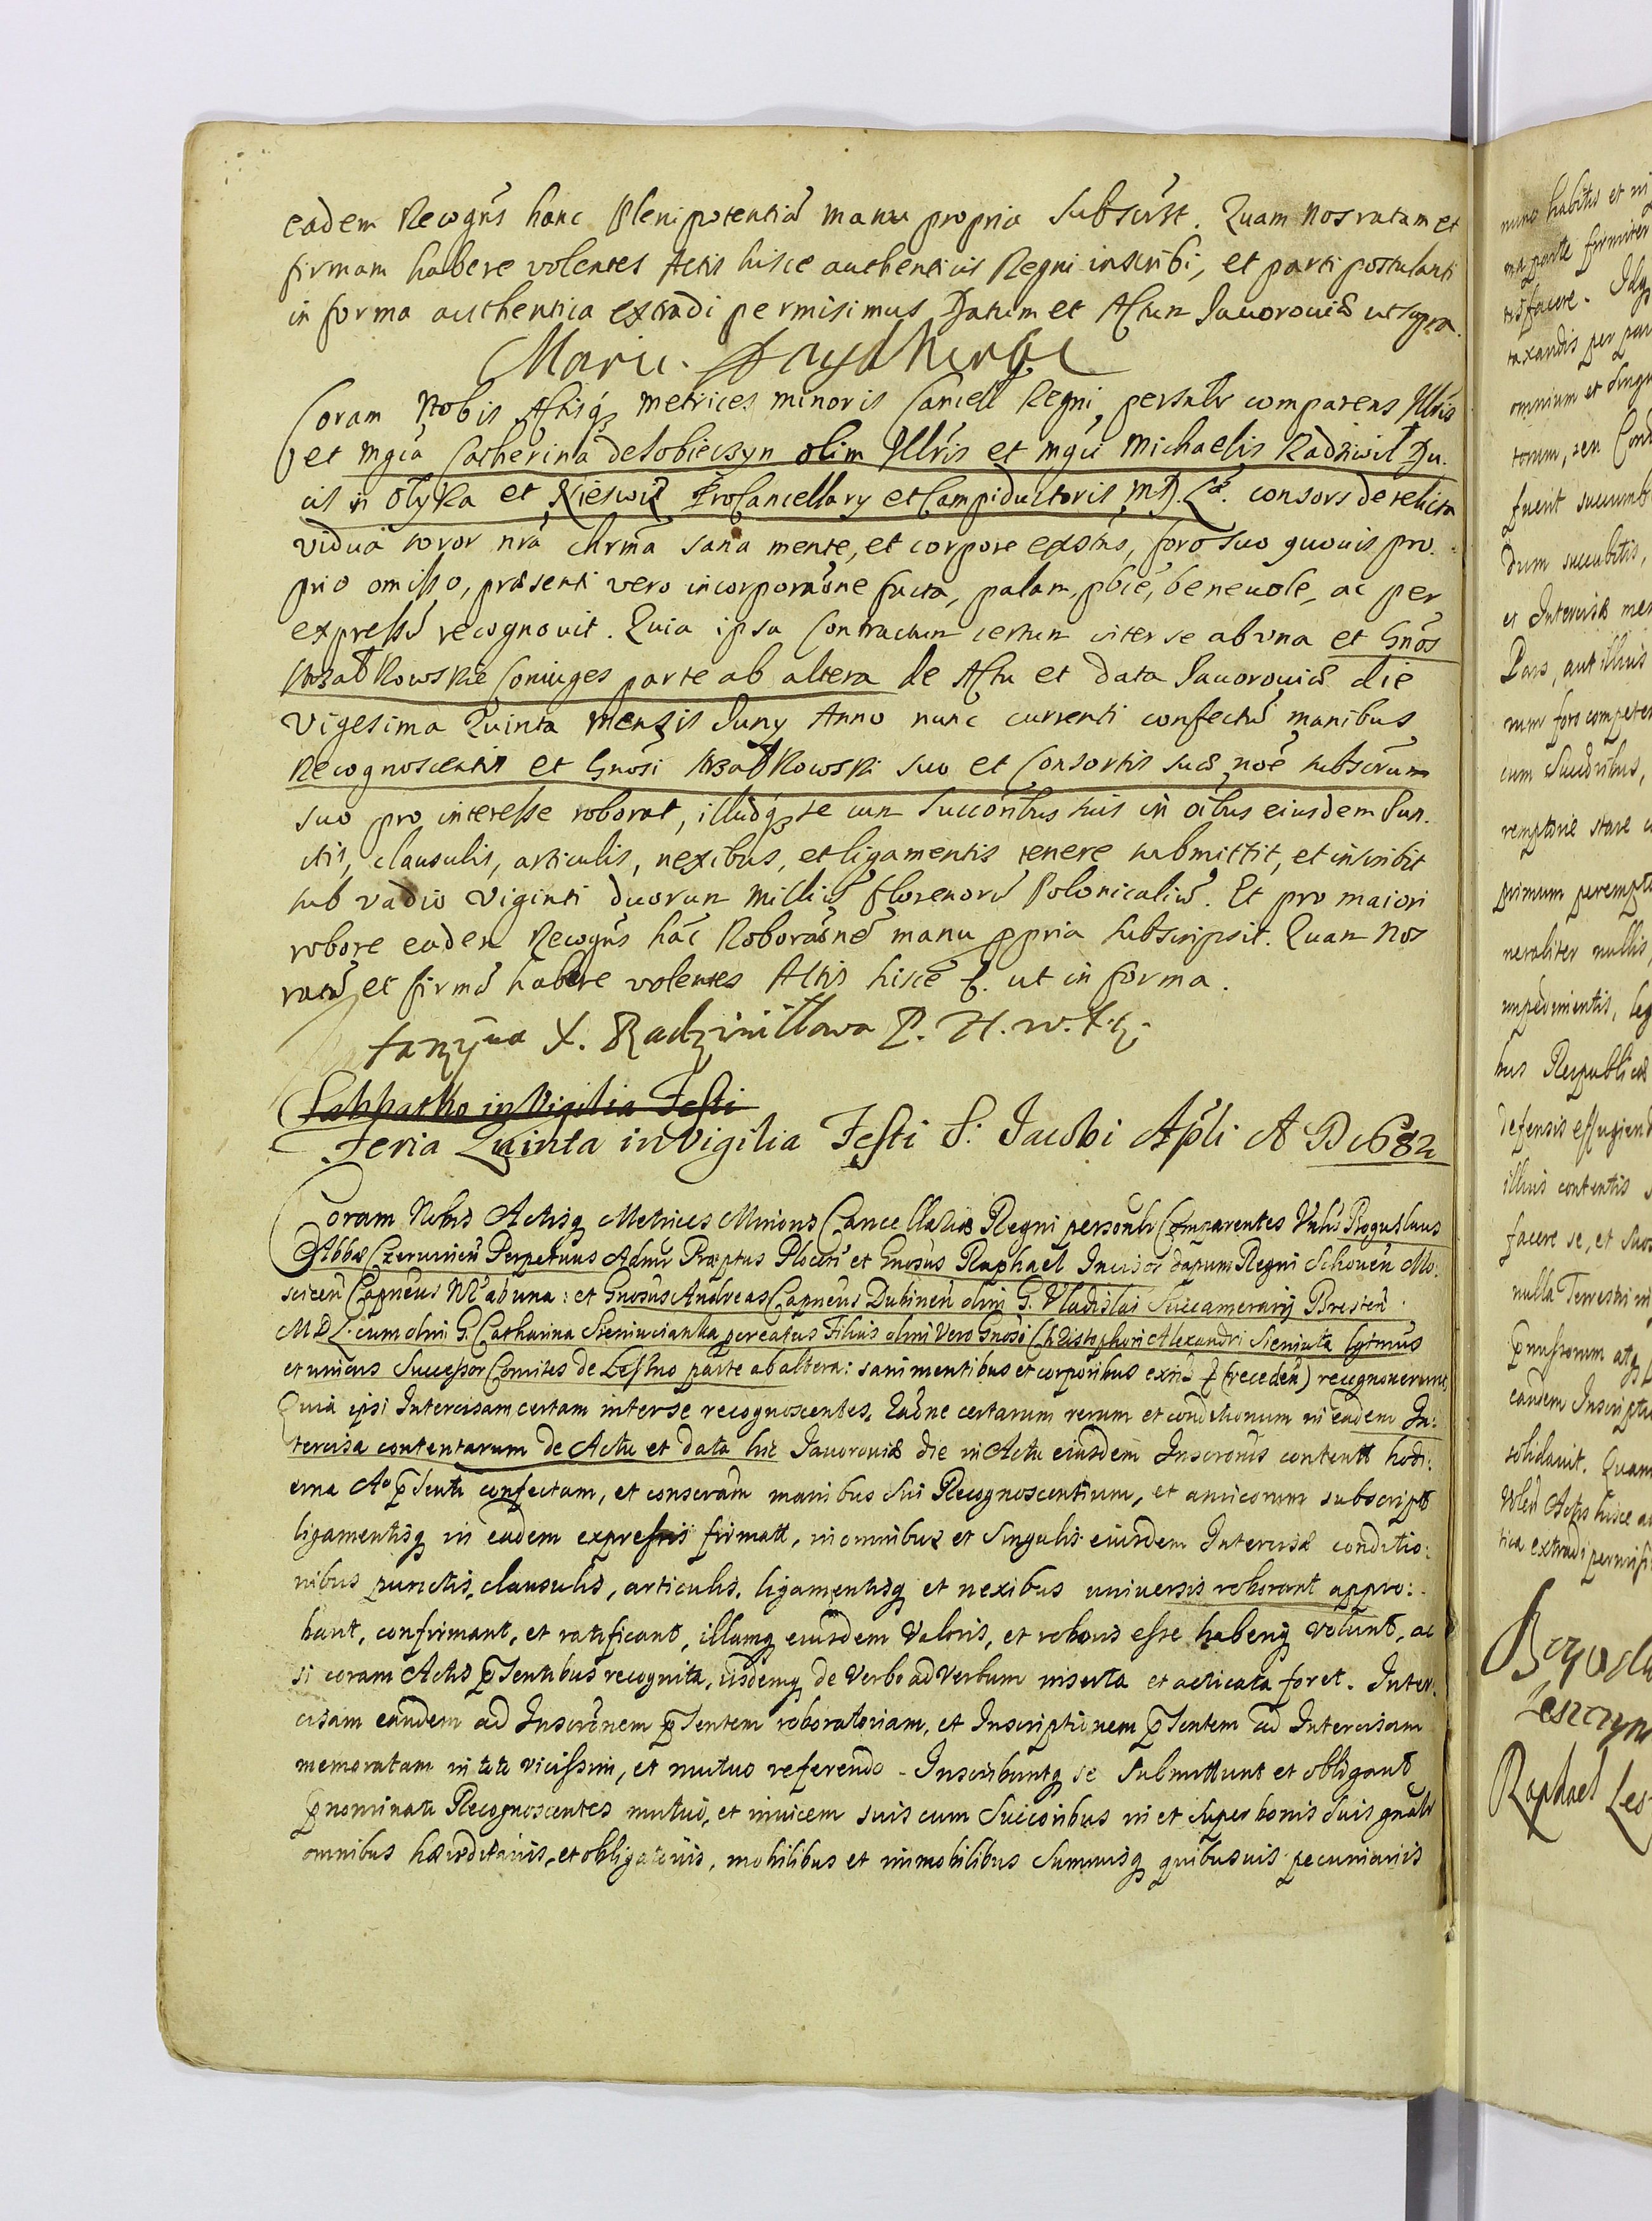 eadem Recogns hanc Plenipotentiā manu propria subscrst. Quam nos ratam et
firmam habere volentes Actis hisce authenticis Regni inscribi, et parti postulanti
in forma authentica extradi permisimus Datum et Actum Jauorouiæ ut supra.
Coram Nobis Actisq3 metrices minoris Cancell Regni psnlr comparens Illris
et mgca Catherina de Sobieisyn olim Illris et mgci Michaelis Radziwił Du.
cis in Olyka et Nieswiż ProCancellary et Campiductoris M.D.L. consors derelicta
vidua soror nra chrma sana mente, et corpore exstns, foro suo quouis pro.
prio omisso, præsenti vero incorporaone facta, palam, pbce, beneuole, ac per
expressū recognouit. Quia ipsa Contractum certum inter se ab vna et Gnos
Coniuges parte ab altera de Actu et data Jauorouiæ die
vigesima Quinta mensis Juny Anno nunc currenti confectū manibus
Recognoscentis et Gnosi suo et Consortis suæ noe subscrum
suo pro interesse roborat, illudq3 se cum Succoribus suis in oibus eiusdem Pun.
ctis, clausulis, articulis, nexibus, et ligamentis tenere submittit, et inscribit
sub vadio viginti duorum milliū florenorū Polonicaliū. Et pro maiori
robore eadem Recogns hac Roboraonē manu ppria subscripsit. Quam Nos
ratā et firmā habere volentes Actis hisce f. ut in forma.
X. Radziwiłłowa P. H. w. X. L.
Sabbatho in Vigilia Festi
Feria Quinta in Vigilia Festi S. Jacobi Apli A D 1682
Coram Nobis Actisq3 Metrices Minoris Cancellariæ Regni personlr Comparentes Vnlis Boguslaus
Abbas Czeruinen Perpetuus Admr Præptus Plocen et Gnosus Raphael Incisor dapum Regni Schouen Mo.
scicen Capneus ab una: et Gnosus Andreas Capneus Dubinen olim G. Vladislai Succamerarij Bresten
M D L. cum olim G. Catharina Sieniucianka percatus Filius olim Vero Gnosi Christophori Alexandri Sieniuta
et unicus Successor Comites de Leszno parte ab altera: sani mentibus et corporibus exñs f (receden) recognouerunt,
Quia ipsi Intercisam certam inter se recognoscentes, raone certarum rerum et conditionum in eadem In:
tercisa contentarum de Actu et data hic Jauorouiæ die in Actu eiusdem Inscronis content hodi:
erna Ao psenti confectam, et conscram manibus sui Recognoscentium, et amicorum subscript
ligamentisq3 in eadem expressis firmatt, in omnibus et singulis eiusdem Intercisæ conditio:
nibus punctis, clausulis, articulis, ligamentisq3 et nexibus universis roborant appro:
bant, confirmant, et ratificant, illamq3 eiusdem Valoris, et roboris esse haberiq3 volunt, ac
si coram Actis psentibus recognita, iisdemq3 de verbo ad verbum inserta et acticata foret. Inter.
cisam eandem ad Inscronem psentem roboratoriam, et Inscriptionem psentem ad Intercisam
memoratam in toto vicissim, et mutuo referendo. Inscribuntq3 se submittunt et obligant
pnominati Recognoscentes mutuo, et inuicem suis cum Succoribus in et super bonis suis gnalr
omnibus hæreditarijs, et obligatorijs, mobilibus et immobilibus summisq3 quibusuis pecuniarijs
nunc habitis et in
parte firmiter
taxandis per par
omnium et singu
fuerit succumb
dum succubitis,
et Intercisæ mem
Pars, aut illius
rum foro compete
cum Succoribus,
remptorie stare
primum perempt
neraliter nullis,
impedimentis, leg
Republicæ
defensis effugiend
illius contentis
facere se, et suos
nulla Terrestri
eandem Inscripti
solidauit. Quam
Volen Actis hisce au
tica extradi permis
Bogusla
Leszczyn
Raphael Les